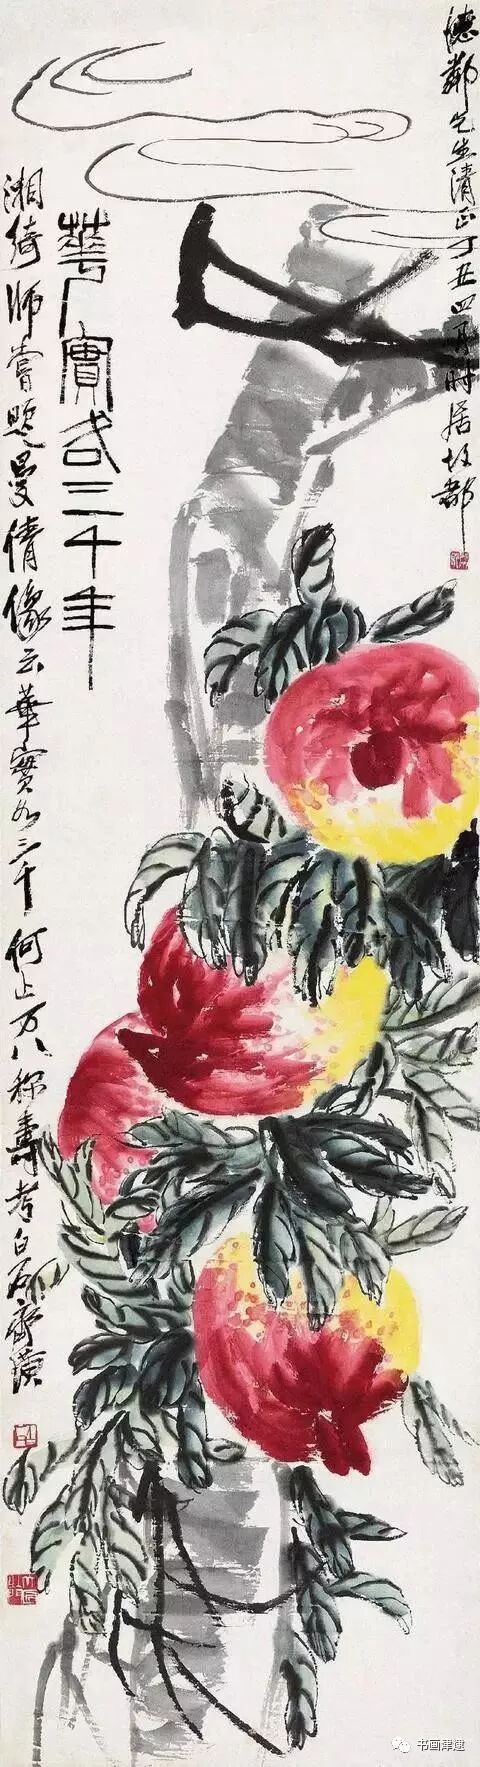 德鄰先生清正丁丑四月時居故都
華實各三千年
湘綺師嘗題曼倩像云華實各三千何止万八称壽考白石齊璜
书画津逮